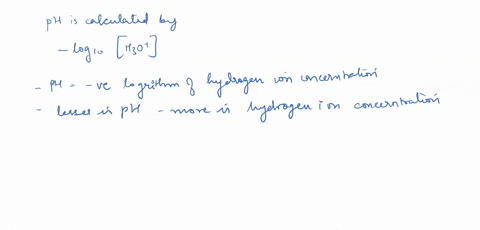 pH is calculated by
- log10 [H3O+]
- pH = -ve logrithm of hydrogen ion concentration
- lesser in pH - more in hydrogen ion concentration